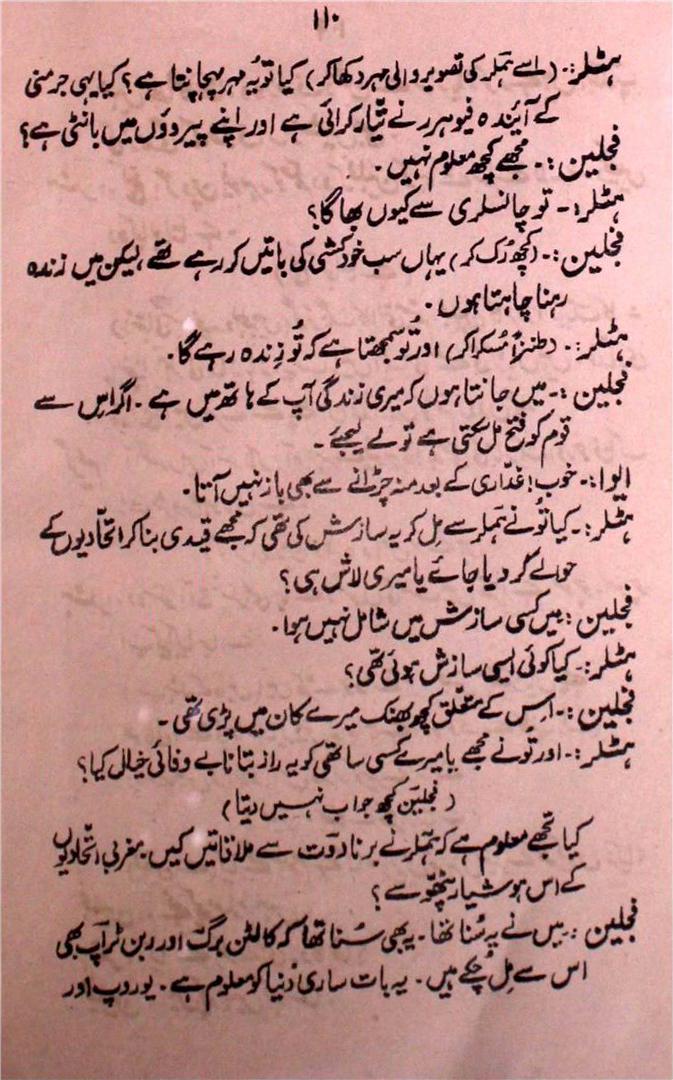 ۱۱۰
ہٹلر:۔ (اسے ہملر کی تصویر والی مہر دکھا کر) کیا تو یہ مہر پہچانتا ہے؟ کیا یہی جرمنی
کے آئندہ فیوہرر نے تیّار کرائی ہے اور اپنے پیروؤں میں بانٹی ہے؟
فجلین:۔ مجھے کچھ معلوم نہیں۔
ہٹلر:۔ تو چانسلری سے کیوں بھاگا؟
فجلین:۔ (کچھ رُک کر) یہاں سب خودکشی کی باتیں کر رہے تھے لیکن میں زندہ
رہنا چاہتا ہوں۔
ہٹلر:۔ (طنزاً مُسکرا کر) اور تُو سمجھتا ہے کہ تُو زِندہ رہے گا۔
فجلین:۔ میں جانتا ہوں کہ میری زندگی آپ کے ہاتھ میں ہے۔ اگر اس سے
قوم کو فتح مل سکتی ہے تو لے لیجئے۔
ایوا:۔ خوب! غدّاری کے بعد منہ چڑانے سے بھی باز نہیں آتا۔
ہٹلر:۔ کیا تُو نے ہملر سے مِل کر یہ سازش کی تھی کہ مجھے قیدی بنا کر اتحادیوں کے
حوالے کر دیا جائے یا میری لاش ہی؟
فجلین:۔ میں کسی سازش میں شامل نہیں ہوا۔
ہٹلر:۔ کیا کوئی ایسی سازش ہوئی تھی؟
فجلین:۔ اِس کے متعلق کچھ بھنک میرے کان میں پڑی تھی۔
ہٹلر:۔ اور تُو نے مجھے یا میرے کسی ساتھی کو یہ راز بتانا بے وفائی خیال کیا؟
(فجلین کچھ جواب نہیں دیتا)
کیا تجھے معلوم ہے کہ ہملر نے برنادوت سے ملاقاتیں کیں۔ مغربی اتّحادیوں
کے اس ہوشیار پٹھو سے؟
فجلین:۔ میں نے یہ سُنا تھا۔ یہ بھی سُنا تھا کہ کالٹن برگ اور ربن ٹراپ بھی
اس سے مِل چُکے ہیں۔ یہ بات ساری دُنیا کو معلوم ہے۔ یوروپ اور